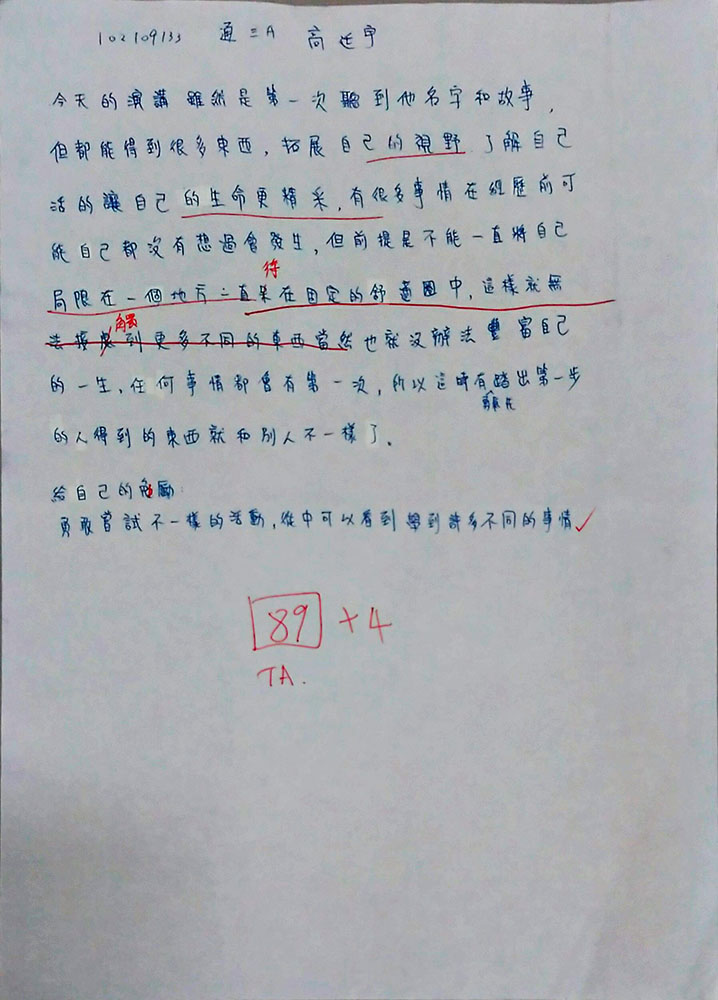 102109133 通三A 高廷宇
今天的演講雖然是第一次聽到他名字和故事,
但都能得到很多東西,拓展自己的視野了解自己
活的讓自己的生命更精采,有很多事情在經歷前可
能自己都沒有想過會發生,但前提是不能一直將自己
待
局限在一個地方一直呆在固定的舒適圈中,這樣就無
觸
法接應到更多不同的東西當然也就沒辦法豐富自己
的一生、任何事情都會有第一次,所以這時有踏出第一步
的人得到的東西就和別人不一樣了。
給自己的勉勵:
勇敢嘗試不一樣的活動,從中可以看到學到許多不同的事情✓
89 +4
TA.